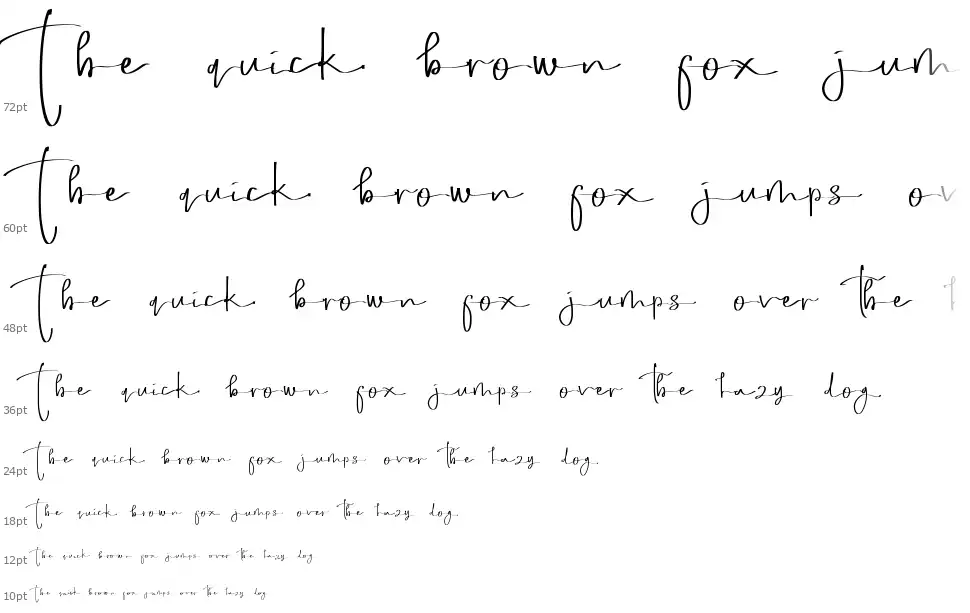 The quick brown fox jum
72pt
The quick brown fox jumps ov
60pt
The quick brown fox jumps over the
48pt
The quick brown fox jumps over the lazy dog
36pt
The quick brown fox jumps over the lazy dog
24pt
The quick brown fox jumps over the lazy dog
18pt
The quick brown fox jumps over the lazy dog
12pt
The quick brown fox jumps over the lazy dog
10pt